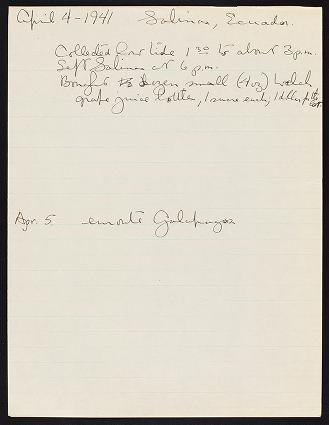 April 4-1941 Salinas, Ecuador.
Collected low tide 1 30 to about 3 p.m.
Left Salinas at 6 p.m.
Bought dozen small (4 oz) Welch
grape juice bottles, 1 sucre each,
Apr. 5 enroute Galapagos